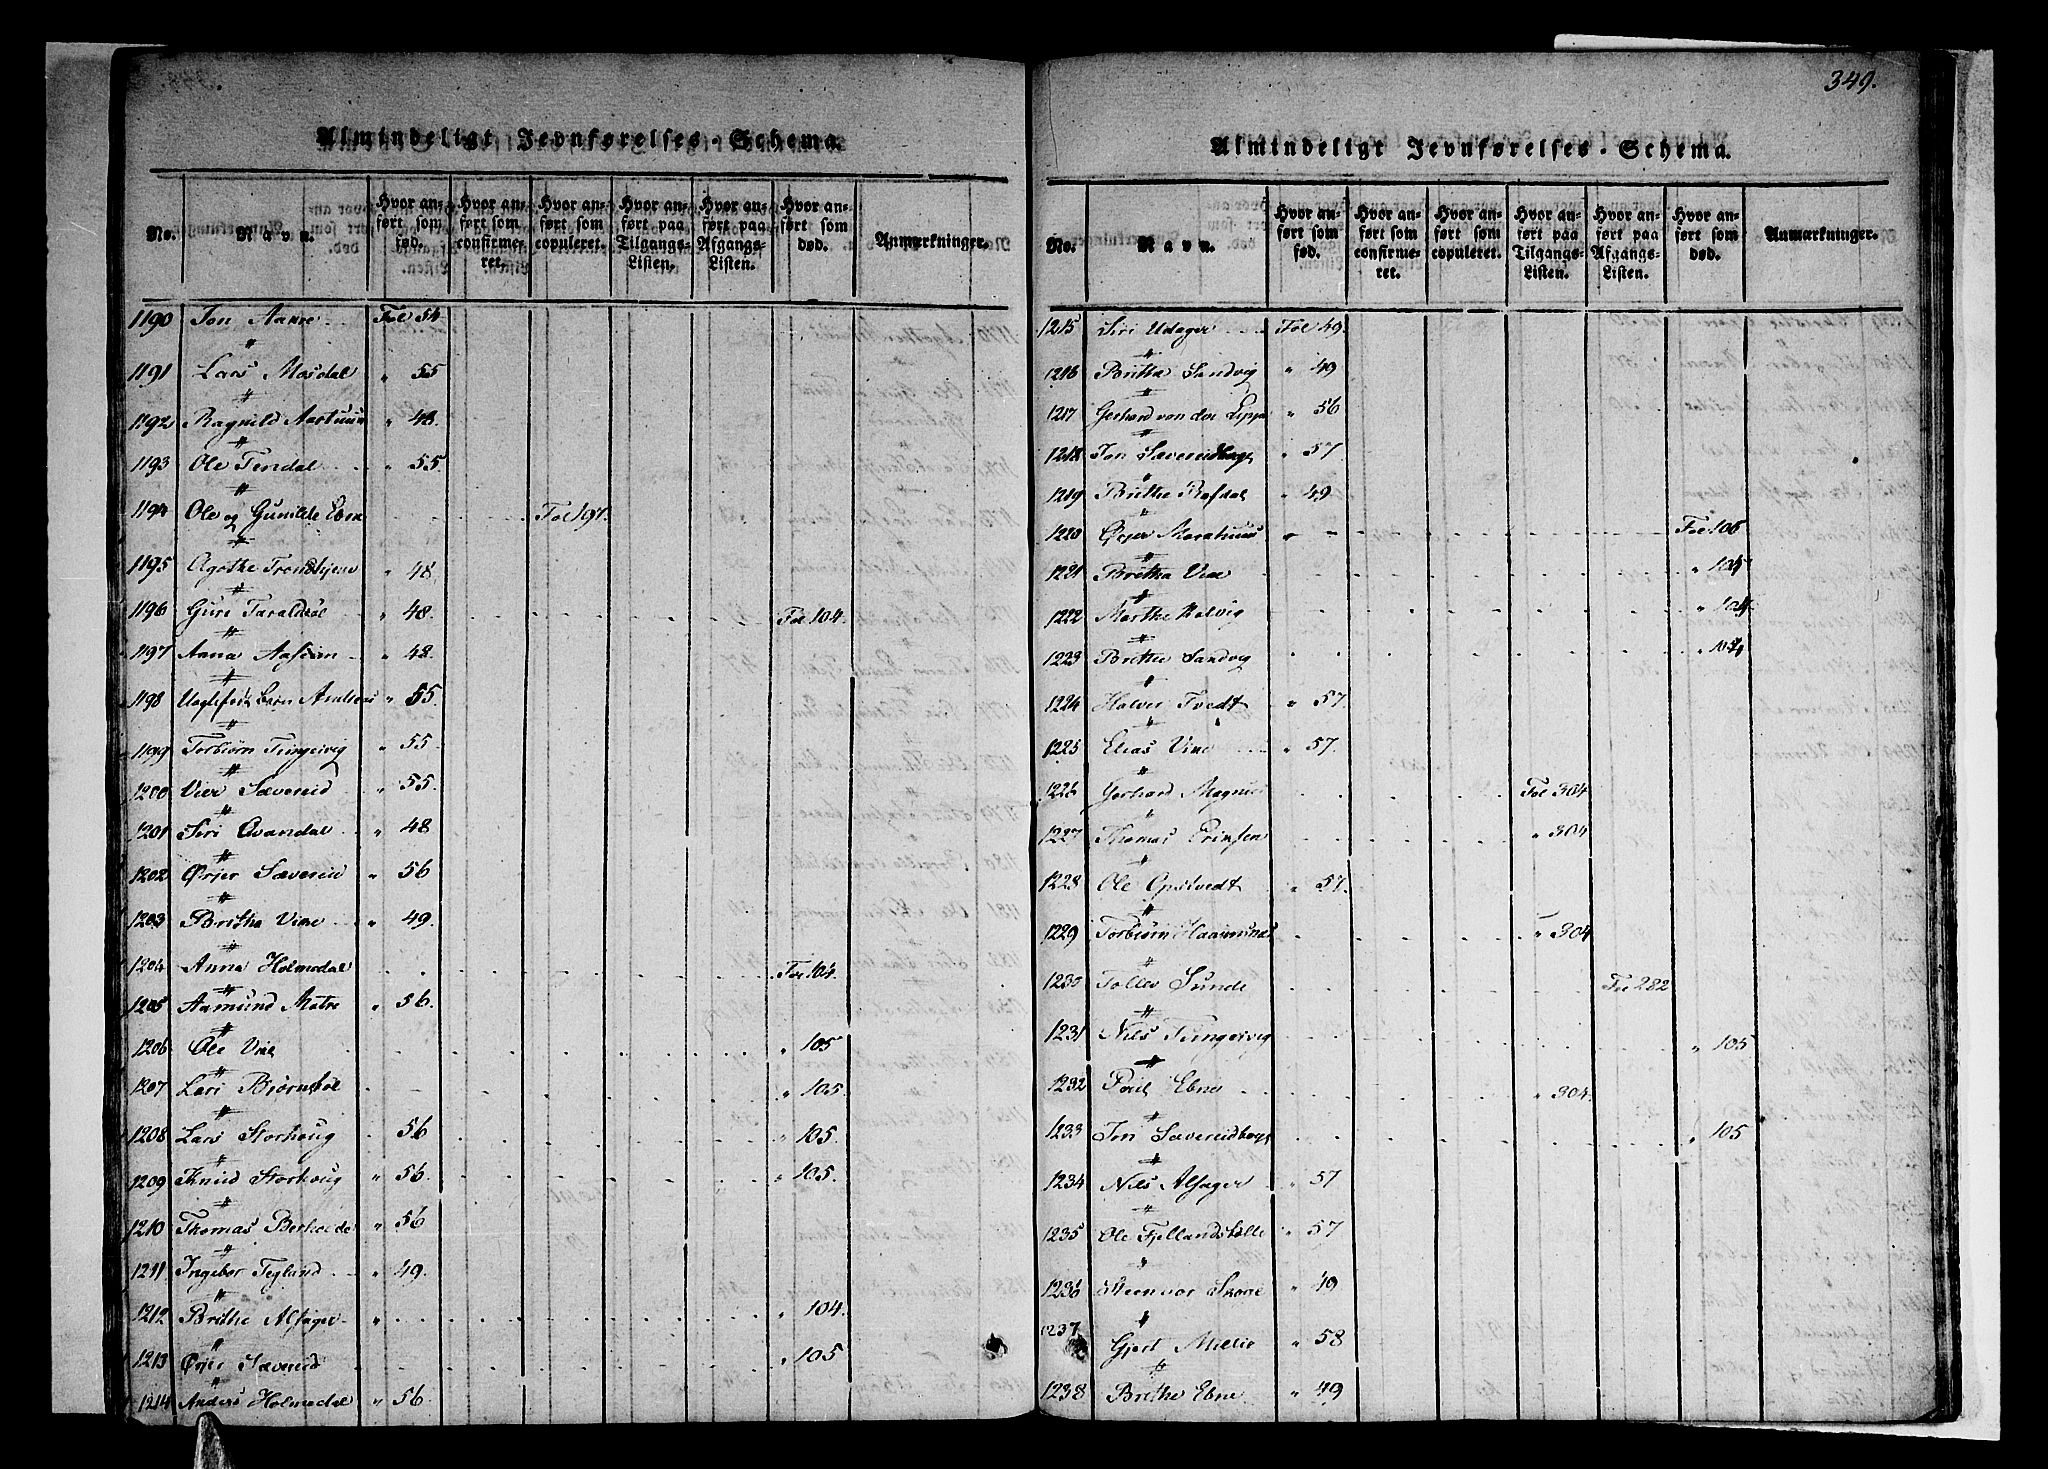 Almindeligt Jevnførelses-Schema.
No.
Navn.
Hvor anført som fød.
Hvor anført som confirmeret.
Hvor anført som copuleret.
Hvor anført paa Tilgangs-Listen.
Hvor anført paa Afgangs-Listen.
Hvor anført som død.
Anmærkninger.
1190 Jon Aanre Fol 54
1191 Lars Mosdal " 55
1192 Ragnild Aarhuus " 48.
1193 Ole Tendal " 55
1194 Ole og Gunilde Ebne Fol 197.
1195 Agathe Trondhjem " 48
1196 Guri Taraldsøl " 48 Fol 104.
1197 Anna " 48.
1198 Barn Andreas " 55.
1199 Torbiørn Tungesvig " 55
1200 Sævereid " 55.
1201 Siri Qvandal " 48
1202 Ørjer Sævereid " 56
1203 Britha Vine " 49
1204 Anna Holmedal Fol 104.
1205 Aamund Matre " 56.
1206 Ole " 105
1207 Lari Biørnstøl " 105.
1208 Lars Storhoug 56 " 105.
1209 Knud Storhoug " 56. " 105.
1210 Thomas " 56
1211 Ingebor Tegland " 49.
1212 Brithe Alsager " " 104.
1213 Ørjer Sævereid " 105
1214 Anders Holmedal " 56
349.
Almindeligt Jevnførelses-Schema.
No.
Navn.
Hvor anført som fød.
Hvor anført som confirmeret.
Hvor anført som copuleret.
Hvor anført paa Tilgangs-Listen.
Hvor anført paa Afgangs-Listen.
Hvor anført som død.
Anmærkninger.
1215 Siri Udager Fol 49.
1216 Britha Sandvig " 49
1217 Gerhard von der Lippe " 56
1218 Jon Sævereidberge " 57
1219 Brithe Røfdal " 49
1220 Ørjer Marahuus Fol 106
1221 Britha Vine " 105
1222 Marthe Malvig " 104
1223 Brithe Sandvig " 104
1224 Halver Tvedt " 57.
1225 Elias Vine " 57.
1226 Gerhard Magnus Fol 304
1227 Thomas " 304
1228 Ole Opstvedt " 57.
1229 Torbiørn Haaimsnæs " 304
1230 Tollev Sunde Fol 282
1231 Nils Tungesvig " 105
1232 Poul Ebne " 304.
1233 Jon Sævereidberge " 105
1234 Nils Alsager " 57
1235 Ole Fjellandsbølle " 57
1236 Steenvor " 49
1237 Gjert " 58
1238 Brithe Ebne " 49